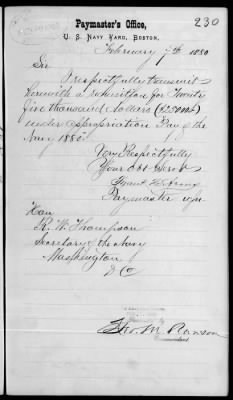 230
Paymaster's Office,
U. S. Navy Yard, Boston.
February 7th 1880
Sir
I respectfully transmit
herewith a requisition for Twenty
five thousand dollars ($25000)
under appropriation Pay of the
Navy 1880.
Very Respectfully
Your Obt Servt
Paymaster USN
Hon
R. W. Thompson
Secretary of the Navy
Washington
D C
Commandant.